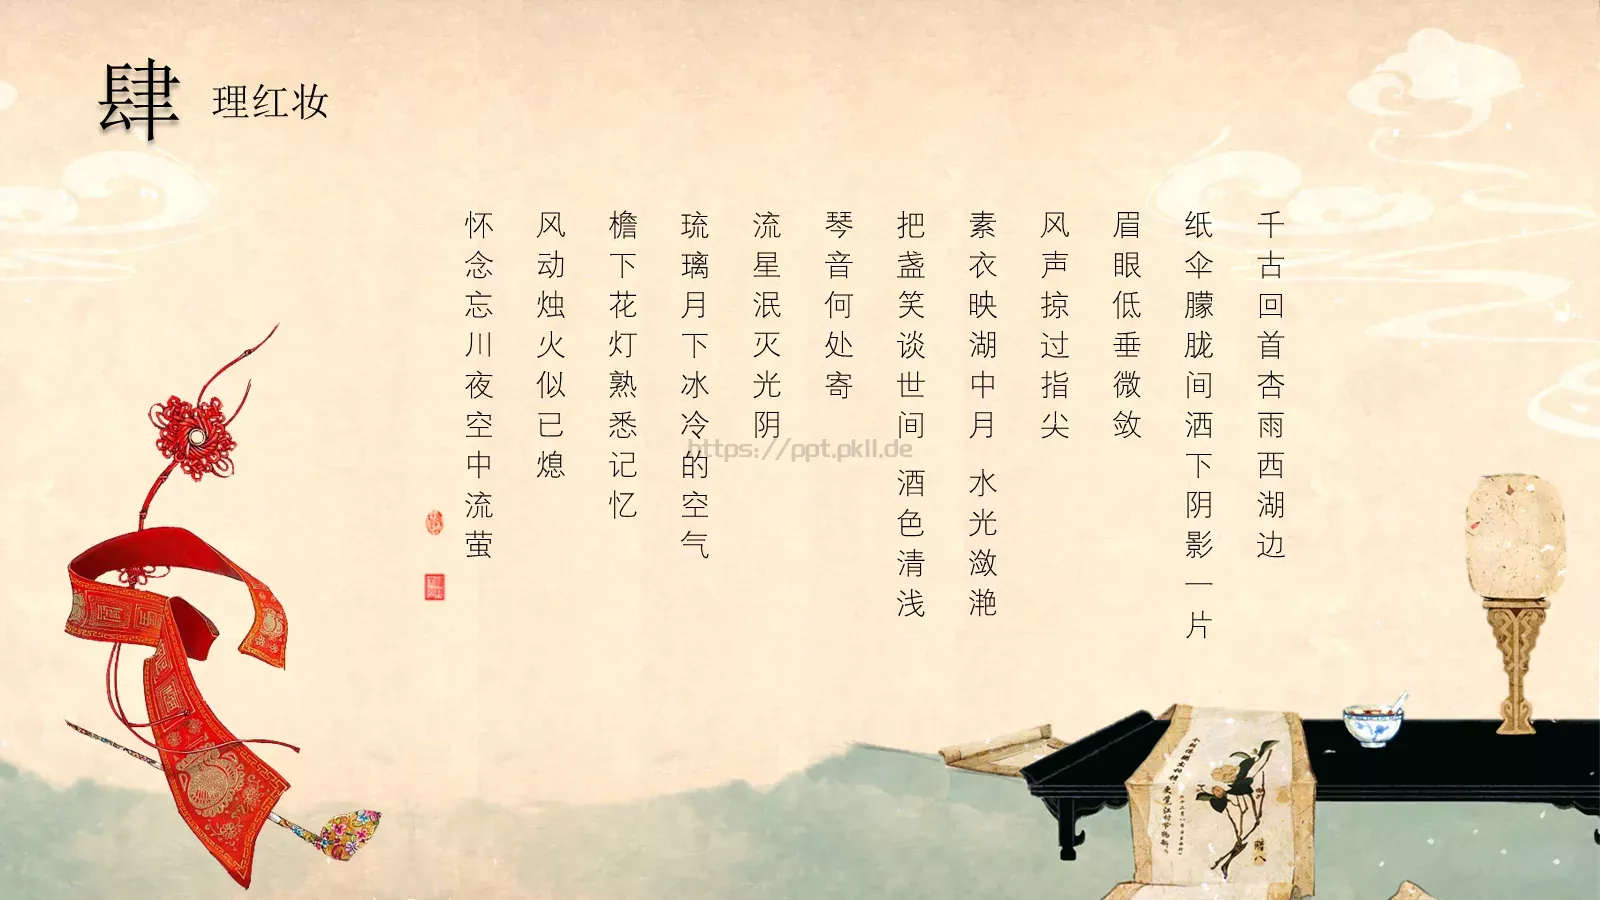 肆
理红妆
千古回首杏雨西湖边
纸伞朦胧间洒下阴影一片
眉眼低垂微敛
风声掠过指尖
素衣映湖中月 水光潋滟
把盏笑谈世间 酒色清浅
琴音何处寄
流星泯灭光阴
琉璃月下冰冷的空气
檐下花灯熟悉记忆
风动烛火似已熄
怀念忘川夜空中流萤
https://ppt.pkll.de
腊八